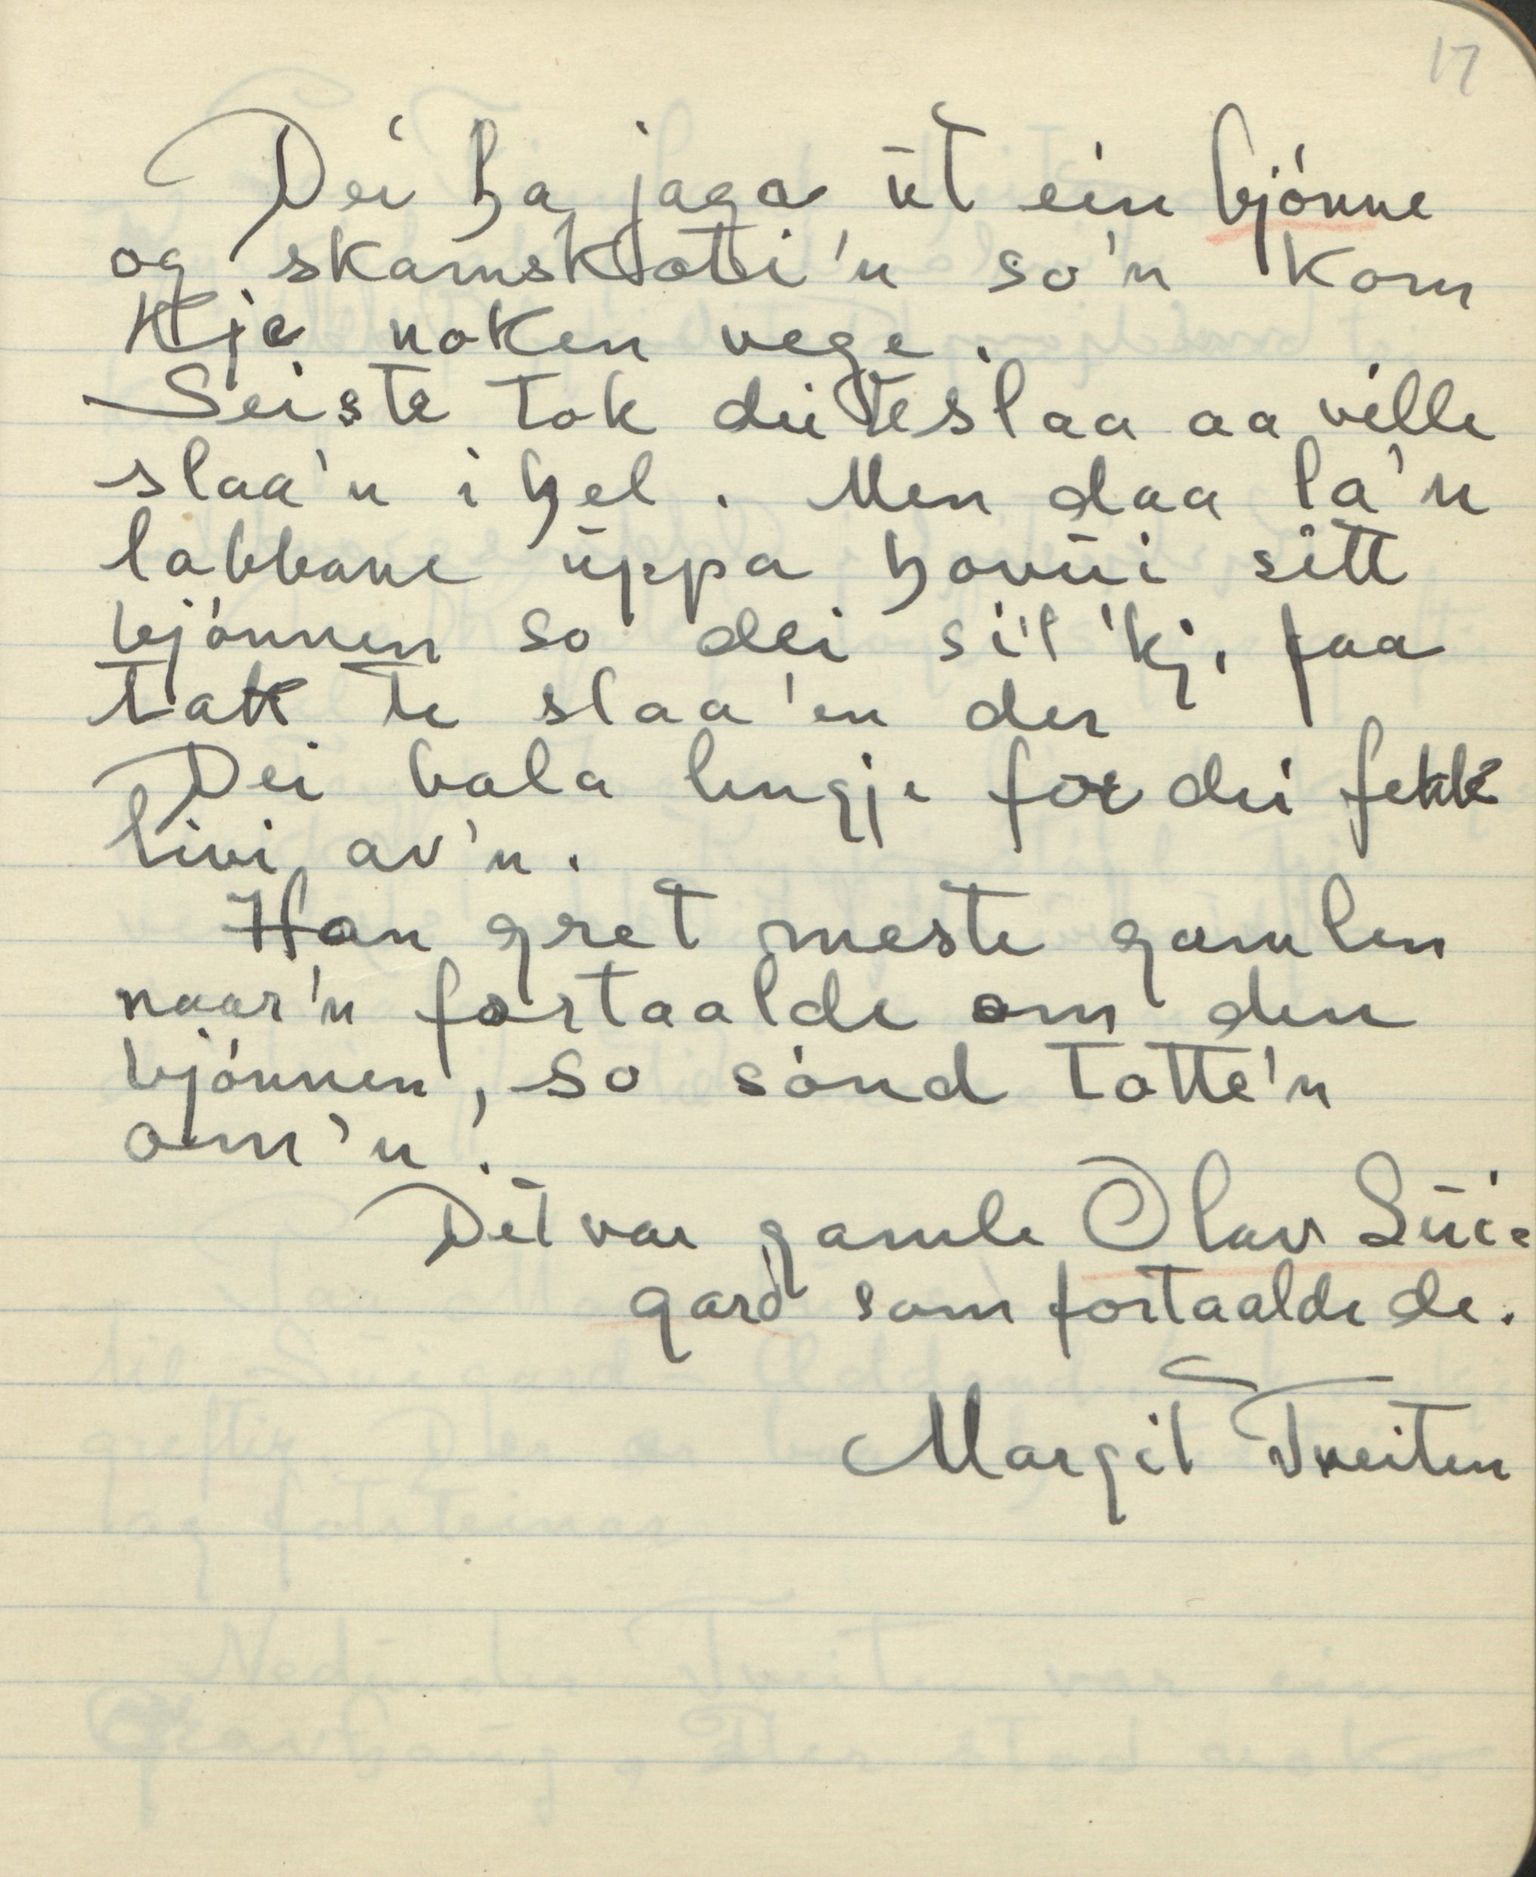 17
Dei ha jaga ut ein bjónne
og skamskotti'n so'n kom
kje noken vege.
Seiste tok dei te slaa aa ville
slaa'n ihel. Men daa la'n
labbane uppa hovúi sitt
bjónnen so dei sil'kj. faa
tak te slaa'en der
Dei bala lengje for dei fekk
livi av'n.
Han gret meste gamlen
naar'n fortaalde om den
bjónnen, so sónd totte'n
om'n!
Det var gamle Olav Lúi-
gard som fortaalde de.
Margit Tveiten